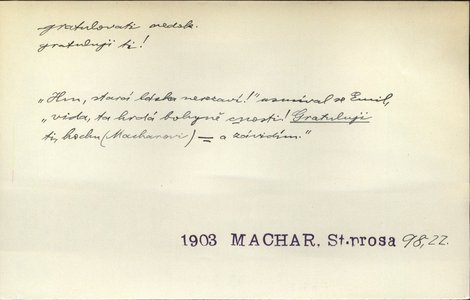 gratulovati nedok.
gratuluji ti!
„Hm, stará láska nerezaví!" usmíval se Emil,
„vida, ta hrdá bohyně cnosti! Gratuluji
ti, hochu (Macharovi) = a závidím."
1903 MACHAR, St.prosa 98,22.